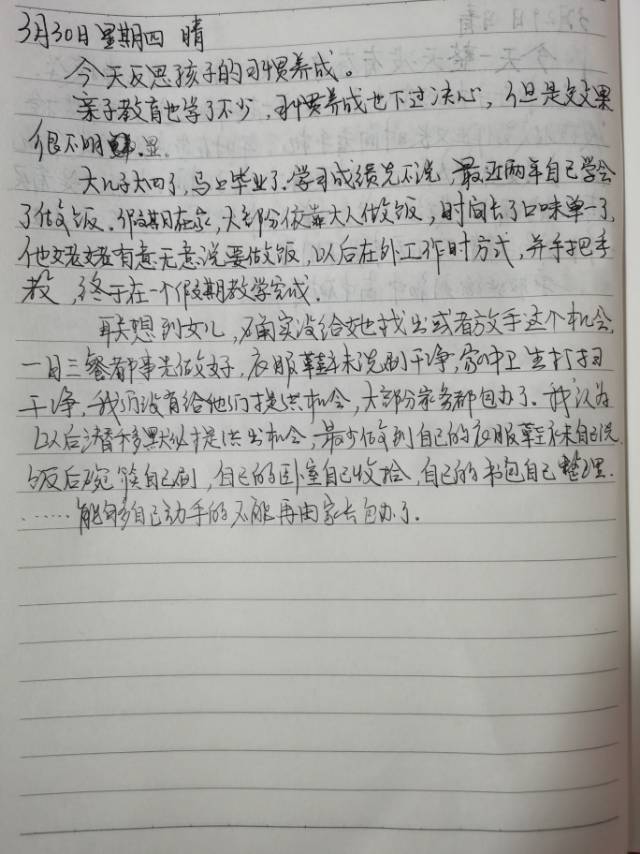 3月30日 星期四 晴
今天反思孩子的习惯养成。
亲子教育也学了不少，习惯养成也下过决心，但是效果
很不明显.
大儿子大四了，马上毕业了.学习成绩先不说，最近两年自己学会
了做饭.假期在家，大部份依靠大人做饭，时间长了口味单一了，
他妈妈有意无意说要做饭，以后在外工作时方式，并手把手
教，终于在一个假期教学完成.
联想到女儿，确实没给她找出或者放手这个机会，
一日三餐都事先做好，衣服鞋袜洗刷干净，家中卫生打扫
干净，我们没有给他们提供机会，大部分家务都包办了.我认为
以后请督多默从提供出机会，最少做到自己的衣服鞋袜自己洗
饭后碗筷自己刷，自己的卧室自己收拾，自己的书包自己整理.
……能够自己动手的不能再由家长包办了.